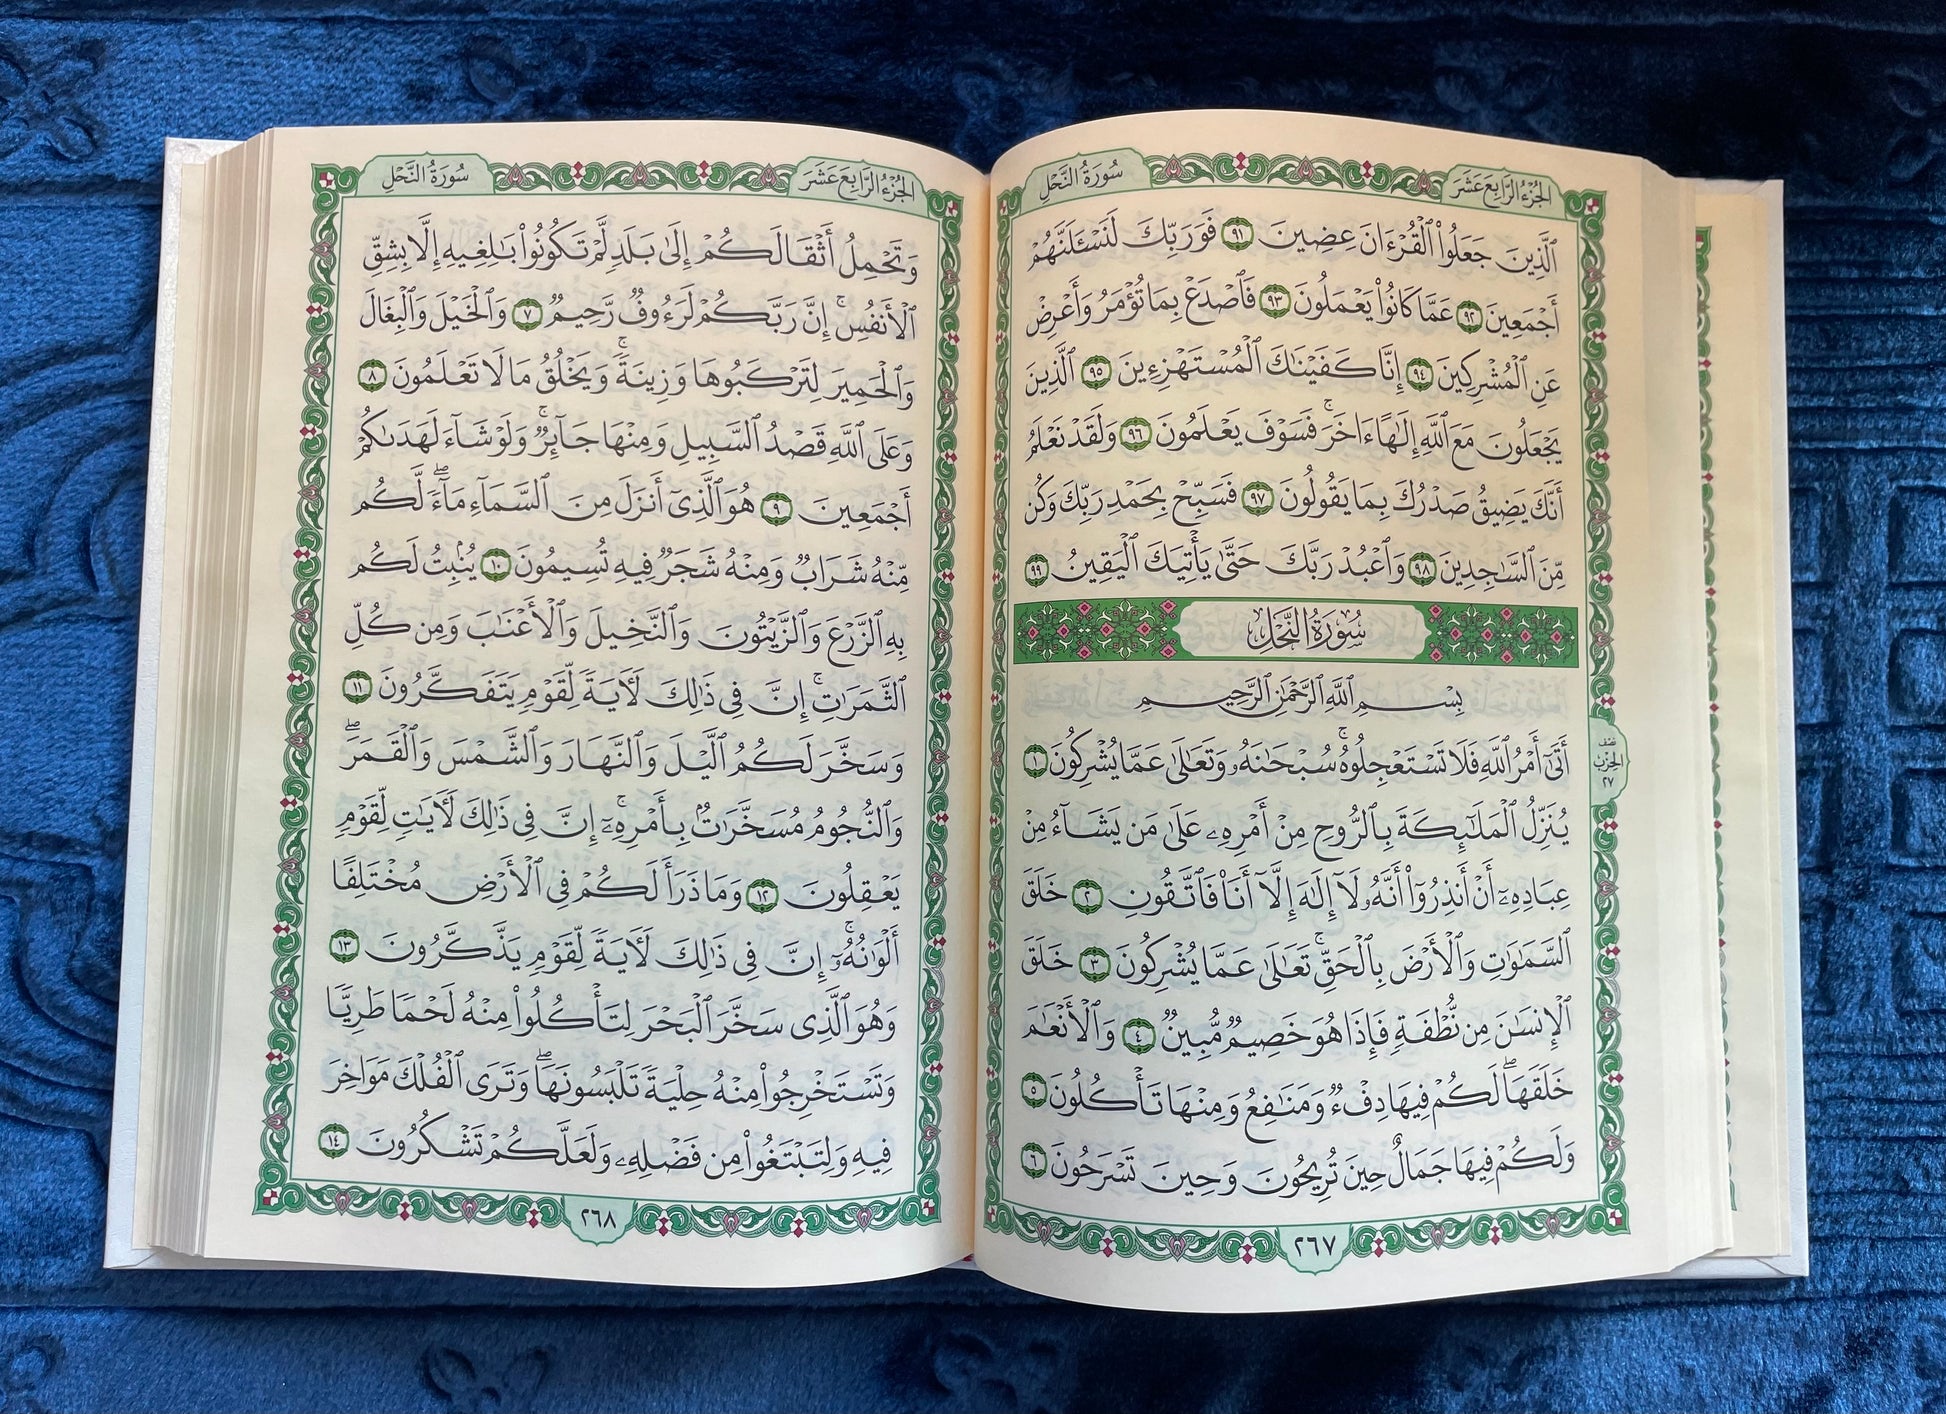 سُورَةُ النَّحْلِ
الجُزْءُ الرَّابِعَ عَشَرَ
ٱلَّذِينَ جَعَلُوا۟ ٱلْقُرْءَانَ عِضِينَ ٩١ فَوَرَبِّكَ لَنَسْـَٔلَنَّهُمْ
أَجْمَعِينَ ٩٢ عَمَّا كَانُوا۟ يَعْمَلُونَ ٩٣ فَٱصْدَعْ بِمَا تُؤْمَرُ وَأَعْرِضْ
عَنِ ٱلْمُشْرِكِينَ ٩٤ إِنَّا كَفَيْنَـٰكَ ٱلْمُسْتَهْزِءِينَ ٩٥ ٱلَّذِينَ
يَجْعَلُونَ مَعَ ٱللَّهِ إِلَـٰهًا ءَاخَرَ ۚ فَسَوْفَ يَعْلَمُونَ ٩٦ وَلَقَدْ نَعْلَمُ
أَنَّكَ يَضِيقُ صَدْرُكَ بِمَا يَقُولُونَ ٩٧ فَسَبِّحْ بِحَمْدِ رَبِّكَ وَكُن
مِّنَ ٱلسَّـٰجِدِينَ ٩٨ وَٱعْبُدْ رَبَّكَ حَتَّىٰ يَأْتِيَكَ ٱلْيَقِينُ ٩٩
سُورَةُ النَّحْلِ
بِسْمِ ٱللَّهِ ٱلرَّحْمَـٰنِ ٱلرَّحِيمِ
أَتَىٰٓ أَمْرُ ٱللَّهِ فَلَا تَسْتَعْجِلُوهُ ۚ سُبْحَـٰنَهُۥ وَتَعَـٰلَىٰ عَمَّا يُشْرِكُونَ ١
يُنَزِّلُ ٱلْمَلَـٰٓئِكَةَ بِٱلرُّوحِ مِنْ أَمْرِهِۦ عَلَىٰ مَن يَشَآءُ مِنْ
عِبَادِهِۦٓ أَنْ أَنذِرُوٓا۟ أَنَّهُۥ لَآ إِلَـٰهَ إِلَّآ أَنَا۠ فَٱتَّقُونِ ٢ خَلَقَ
ٱلسَّمَـٰوَٰتِ وَٱلْأَرْضَ بِٱلْحَقِّ ۚ تَعَـٰلَىٰ عَمَّا يُشْرِكُونَ ٣ خَلَقَ
ٱلْإِنسَـٰنَ مِن نُّطْفَةٍ فَإِذَا هُوَ خَصِيمٌ مُّبِينٌ ٤ وَٱلْأَنْعَـٰمَ
خَلَقَهَا ۗ لَكُمْ فِيهَا دِفْءٌ وَمَنَـٰفِعُ وَمِنْهَا تَأْكُلُونَ ٥
وَلَكُمْ فِيهَا جَمَالٌ حِينَ تُرِيحُونَ وَحِينَ تَسْرَحُونَ ٦
نصف
الحزب
٢٧
٢٦٧
سُورَةُ النَّحْلِ
الجُزْءُ الرَّابِعَ عَشَرَ
وَتَحْمِلُ أَثْقَالَكُمْ إِلَىٰ بَلَدٍ لَّمْ تَكُونُوا۟ بَـٰلِغِيهِ إِلَّا بِشِقِّ
ٱلْأَنفُسِ ۚ إِنَّ رَبَّكُمْ لَرَءُوفٌ رَّحِيمٌ ٧ وَٱلْخَيْلَ وَٱلْبِغَالَ
وَٱلْحَمِيرَ لِتَرْكَبُوهَا وَزِينَةً ۚ وَيَخْلُقُ مَا لَا تَعْلَمُونَ ٨
وَعَلَى ٱللَّهِ قَصْدُ ٱلسَّبِيلِ وَمِنْهَا جَآئِرٌ ۚ وَلَوْ شَآءَ لَهَدَىٰكُمْ
أَجْمَعِينَ ٩ هُوَ ٱلَّذِىٓ أَنزَلَ مِنَ ٱلسَّمَآءِ مَآءً ۖ لَّكُم
مِّنْهُ شَرَابٌ وَمِنْهُ شَجَرٌ فِيهِ تُسِيمُونَ ١٠ يُنۢبِتُ لَكُم
بِهِ ٱلزَّرْعَ وَٱلزَّيْتُونَ وَٱلنَّخِيلَ وَٱلْأَعْنَـٰبَ وَمِن كُلِّ
ٱلثَّمَرَٰتِ ۗ إِنَّ فِى ذَٰلِكَ لَـَٔايَةً لِّقَوْمٍ يَتَفَكَّرُونَ ١١
وَسَخَّرَ لَكُمُ ٱلَّيْلَ وَٱلنَّهَارَ وَٱلشَّمْسَ وَٱلْقَمَرَ ۖ
وَٱلنُّجُومُ مُسَخَّرَٰتٌۢ بِأَمْرِهِۦٓ ۗ إِنَّ فِى ذَٰلِكَ لَـَٔايَـٰتٍ لِّقَوْمٍ
يَعْقِلُونَ ١٢ وَمَا ذَرَأَ لَكُمْ فِى ٱلْأَرْضِ مُخْتَلِفًا
أَلْوَٰنُهُۥٓ ۗ إِنَّ فِى ذَٰلِكَ لَـَٔايَةً لِّقَوْمٍ يَذَّكَّرُونَ ١٣
وَهُوَ ٱلَّذِى سَخَّرَ ٱلْبَحْرَ لِتَأْكُلُوا۟ مِنْهُ لَحْمًا طَرِيًّا
وَتَسْتَخْرِجُوا۟ مِنْهُ حِلْيَةً تَلْبَسُونَهَا ۖ وَتَرَى ٱلْفُلْكَ مَوَاخِرَ
فِيهِ وَلِتَبْتَغُوا۟ مِن فَضْلِهِۦ وَلَعَلَّكُمْ تَشْكُرُونَ ١٤
٢٦٨